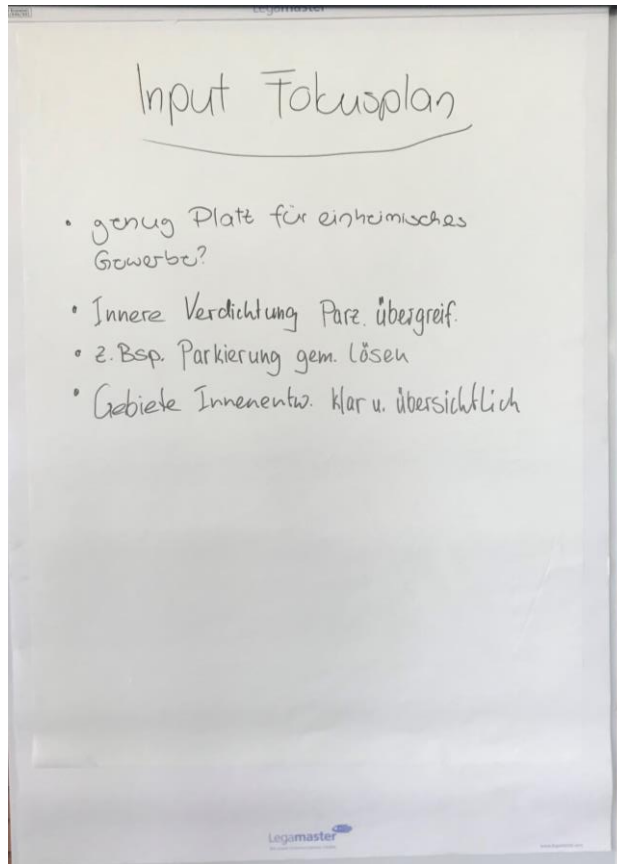 Legamaster
Input Fokusplan
• genug Platz für einheimisches
Gewerbe?
• Innere Verdichtung Parz. übergreif.
• z.Bsp. Parkierung gem. lösen
• Gebiete Innenentw. klar u. übersichtlich
Legamaster